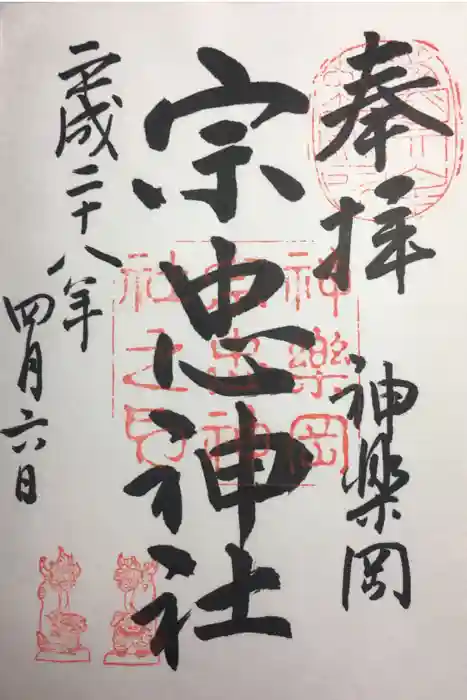 奉拝
神楽岡
宗忠神社
平成二十八年
四月六日
神樂岡
宗忠神
社之印